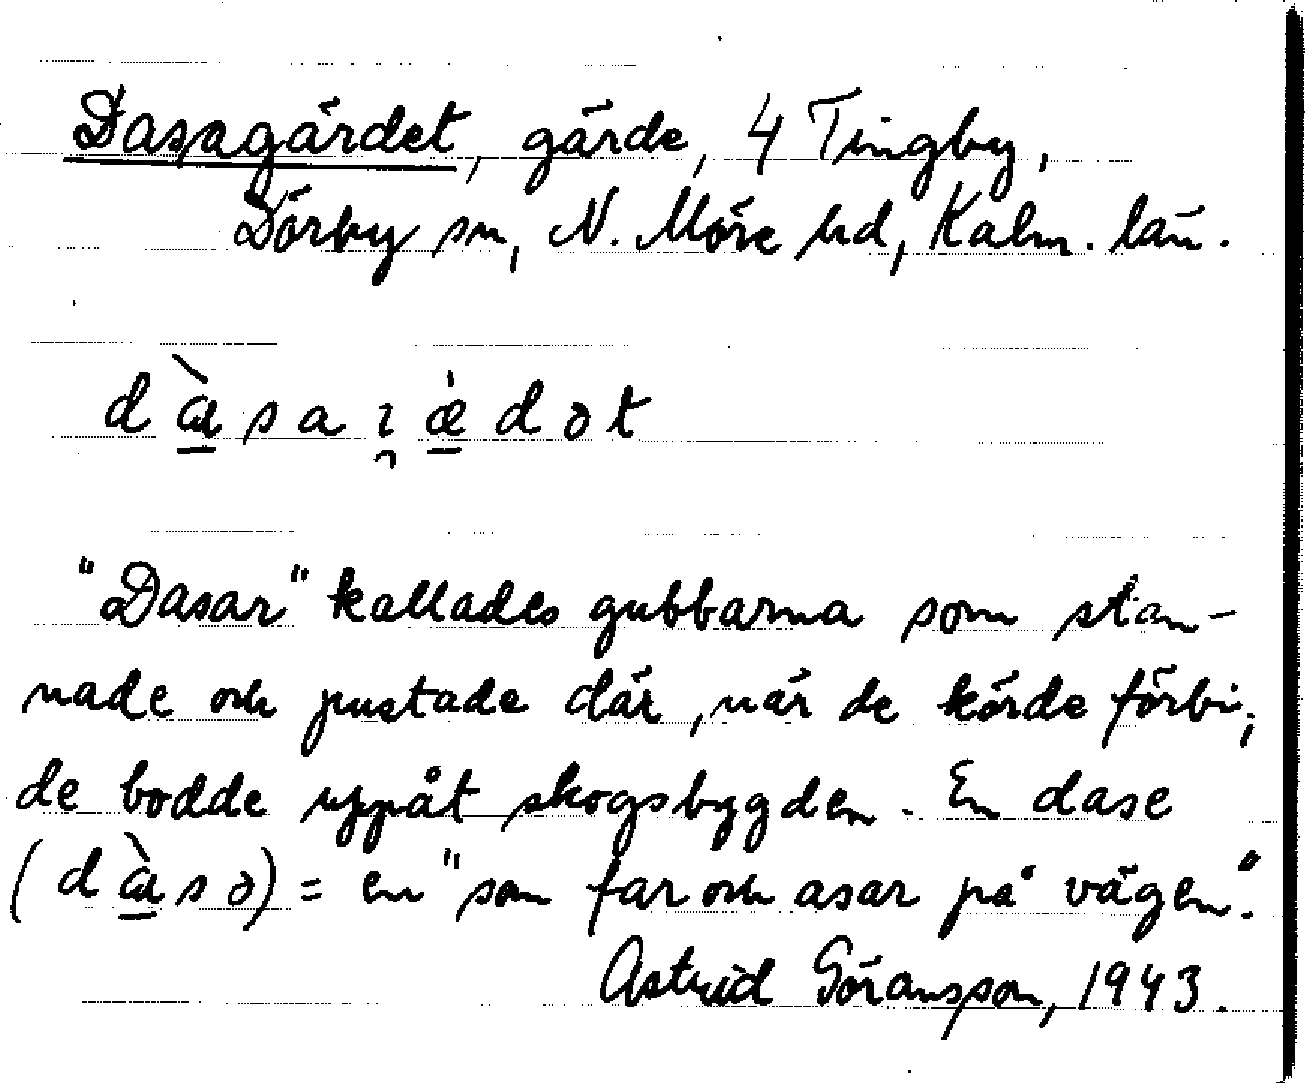 Dasagärdet, gärde, 4 Tingby,
Dörby sn, N. Möre hd, Kalm. län.
dɑ̀sa ɪ̯ æ̀dət
"Dasar" kallades gubbarna som stan-
nade och pustade där, när de körde förbi,
de bodde uppåt skogsbygden. En dase
(dɑ̀sə) = en "som far och asar på vägen".
Astrid Göransson, 1943.